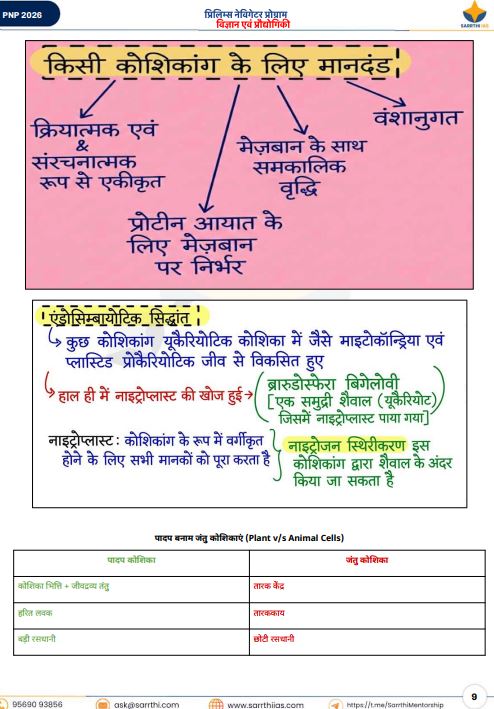 PNP 2026
प्रिलिम्स नेविगेटर प्रोग्राम
विज्ञान एवं प्रौद्योगिकी
SARRTHI IAS
किसी कोशिकांग के लिए मानदंड
क्रियात्मक एवं
&
संरचनात्मक
रूप से एकीकृत
प्रोटीन आयात के
लिए मेज़बान
पर निर्भर
मेज़बान के साथ
समकालिक
वृद्धि
वंशानुगत
एंडोसिम्बायोटिक सिद्धांत
कुछ कोशिकांग यूकैरियोटिक कोशिका में जैसे माइटोकॉन्ड्रिया एवं
प्लास्टिड प्रोकैरियोटिक जीव से विकसित हुए
हाल ही में नाइट्रोप्लास्ट की खोज हुई →
ब्रारुडोस्फेरा बिगेलोवी
[एक समुद्री शैवाल (यूकैरियोट)
जिसमें नाइट्रोप्लास्ट पाया गया]
नाइट्रोप्लास्ट : कोशिकांग के रूप में वर्गीकृत
होने के लिए सभी मानकों को पूरा करता है
नाइट्रोजन स्थिरीकरण इस
कोशिकांग द्वारा शैवाल के अंदर
किया जा सकता है
पादप बनाम जंतु कोशिकाएं (Plant v/s Animal Cells)
पादप कोशिका जंतु कोशिका
कोशिका भित्ति + जीवद्रव्य तंतु तारक केंद्र
हरित लवक तारककाय
बड़ी रसधानी छोटी रसधानी
9
95690 93856 ask@sarrthi.com www.sarrthiias.com https://t.me/SarrthiMentorship